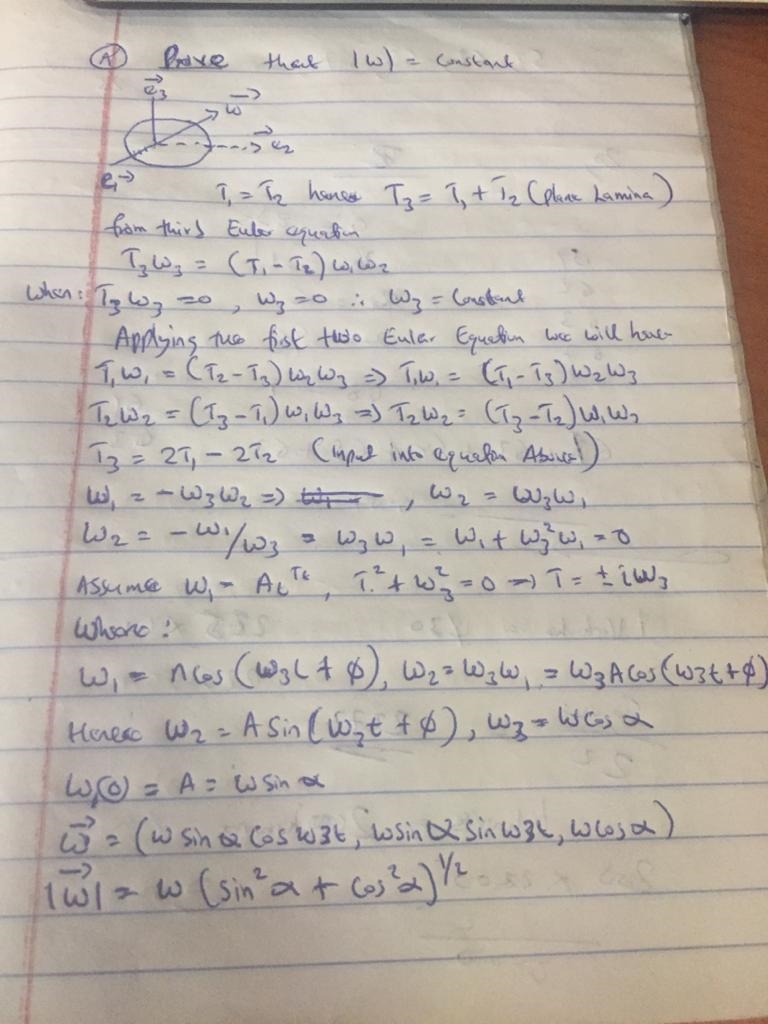 (A) Prove that |ω| = constant
e₃→
ω→
e₂→
e₁→
T₁ = T₂ hence T₃ = T₁ + T₂ (plane Lamina)
from third Euler equation
T₃ω₃ = (T₁ - T₂) ω₁ω₂
When: T₃ω₃ = 0, ω₃ = 0 ∴ ω₃ = Constant
Applying two first two Euler Equation we will have
T₁ω₁ = (T₂ - T₃) ω₂ω₃ => T₁ω₁ = (T₁ - T₃) ω₂ω₃
T₂ω₂ = (T₃ - T₁) ω₁ω₃ => T₂ω₂ = (T₃ - T₂) ω₁ω₃
T₃ = 2T₁ - 2T₂ (Input into equation Above)
ω₁ = -ω₃ω₂ => , ω₂ = ω₃ω₁
ω₂ = -ω₁/ω₃ = ω₃ω₁ = ω₁ + ω₃²ω₁ = 0
Assume ω₁ = Aₜᵀᵗ, T² + ω₃² = 0 => T = ± iω₃
Where:
ω₁ = A cos (ω₃t + φ), ω₂ = ω₃ω₁ = ω₃A cos (ω3t + φ)
Hence ω₂ = A Sin (ω₃t + φ), ω₃ = ω cos α
ω₁(0) = A = ω sin α
ω→ = (ω sin α cos ω3t, ω sin α sin ω3t, ω cos α)
|ω→| = ω (sin²α + cos²α)^1/2